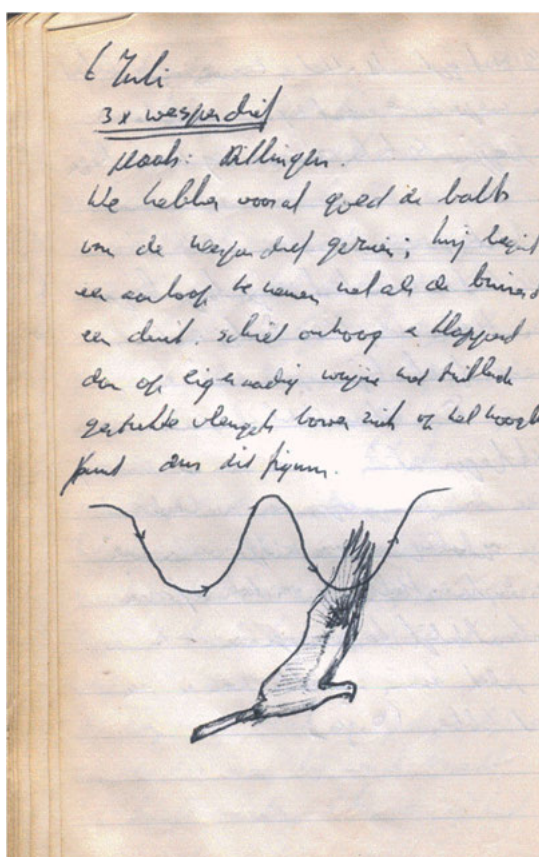 6 Juli
3x wespendief
plaats: Dillingen.
We hebben vooral goed de balts
van de wespendief gezien; hij begint
een aanloop te nemen net als de
een duif. schiet omhoog & klappert
dan op eigenaardige wijze met trillende
gestrekte vleugels boven zich op het hoogste
punt van dit figuur.